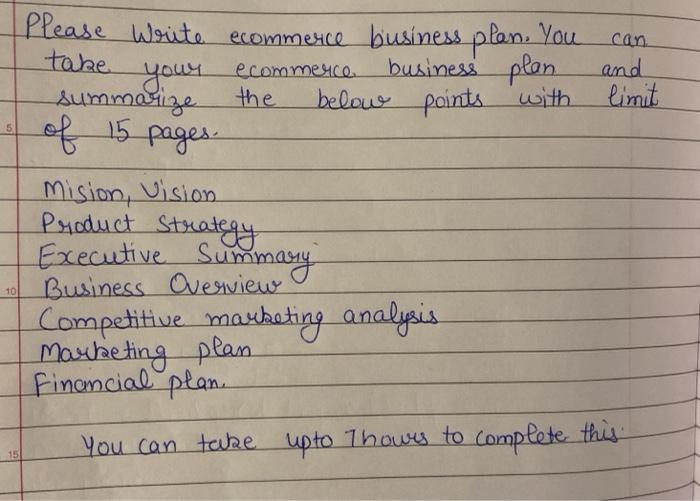 Please Write ecommerce business plan. You can
take your ecommerce business plan and
summarize the below points with limit
5 of 15 pages.
Mision, Vision
Product Strategy
Executive Summary
10 Business Overview
Competitive marketing analysis
Marketing plan
Financial plan.
15 You can take upto 7 hours to complete this.